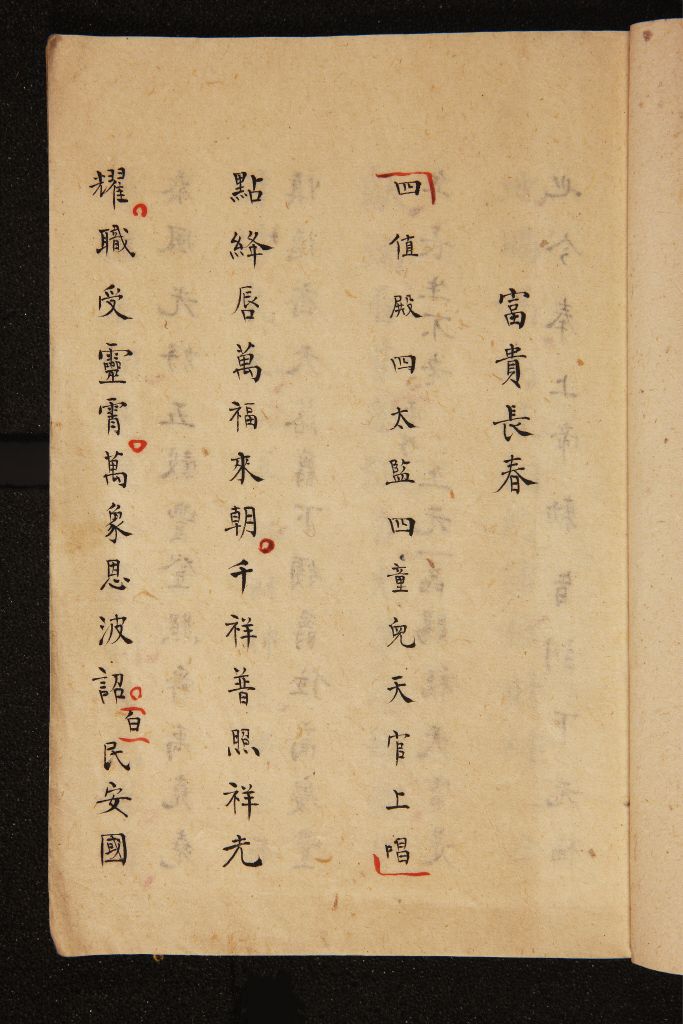 富貴長春
四值殿四太監四童兒天官上唱
點絳唇萬福來朝千祥普照祥光
耀職受靈霄萬象恩波詔白民安國